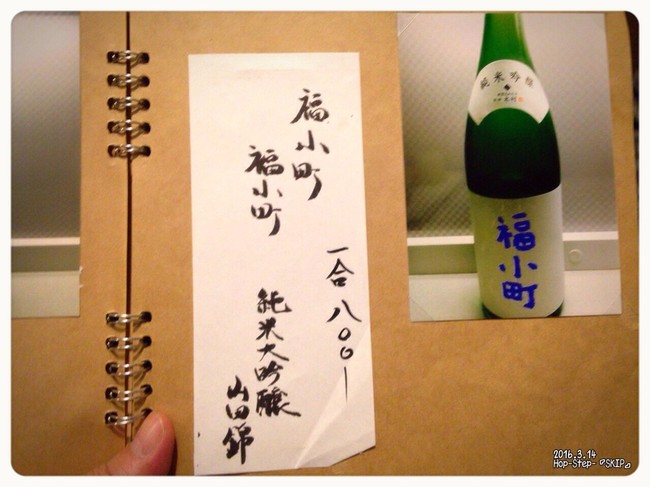 福小町
一合 八〇〇ー
福小町
純米大吟醸
山田錦
純米吟醸
福小町
2016.3.14
Hop-Step- @SKIP。